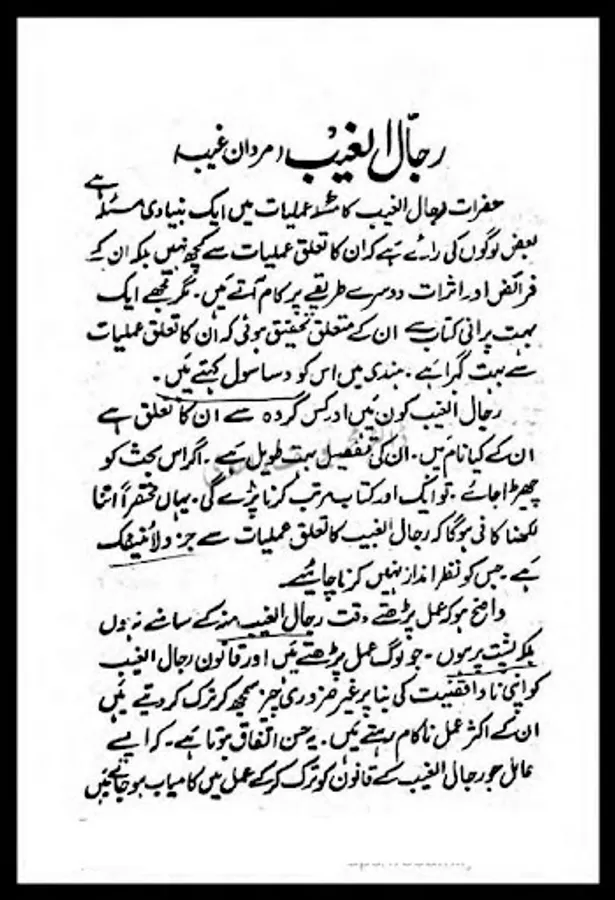 رجال الغیب (مردان غیب)
حضرات رجال الغیب کا مسئلہ عملیات میں ایک بنیادی مسئلہ ہے
بعض لوگوں کی رائے ہے کہ ان کا تعلق عملیات سے کچھ نہیں بلکہ ان کے
فرائض اور اثرات دوسرے طریقے پر کام آتے ہیں۔ مگر مجھے ایک
بہت پرانی کتاب سے ان کے متعلق تحقیق ہوئی کہ ان کا تعلق عملیات
سے بہت گہرا ہے۔ ہندی میں اس کو دساسول کہتے ہیں۔
رجال الغیب کون ہیں اور کس گروہ سے ان کا تعلق ہے
ان کے کیا نام ہیں۔ ان کی تفصیل بہت طویل ہے۔ اگر اس بحث کو
چھیڑا جائے۔ تو ایک اور کتاب مرتب کرنا پڑے گی۔ یہاں مختصراً اتنا
لکھنا کافی ہوگا کہ رجال الغیب کا تعلق عملیات سے جزو لاینفک
ہے۔ جس کو نظر انداز نہیں کرنا چاہیئے۔
واضح ہو کہ عمل پڑھتے وقت رجال الغیب منہ کے سامنے نہ ہوں
بلکہ پشت پر ہوں۔ جو لوگ عمل پڑھتے ہیں اور قانون رجال الغیب
کو اپنی ناواقفیت کی بنا پر غیر ضروری چیز سمجھ کر ترک کر دیتے ہیں
ان کے اکثر عمل ناکام رہتے ہیں۔ یہ حسن اتفاق ہوتا ہے۔ کہ ایسے
عامل جو رجال الغیب کے قانون کو ترک کر کے عمل میں کامیاب ہو جاتے ہیں